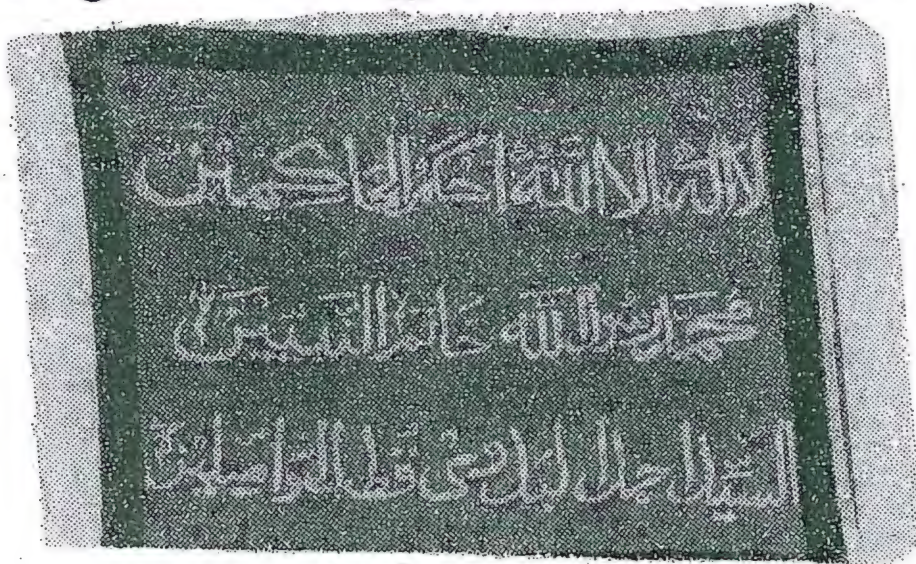 لا اله الا الله احكم الحاكمين
محمد رسول الله خاتم النبيين
السيد جمال ليل قطب الواصلين